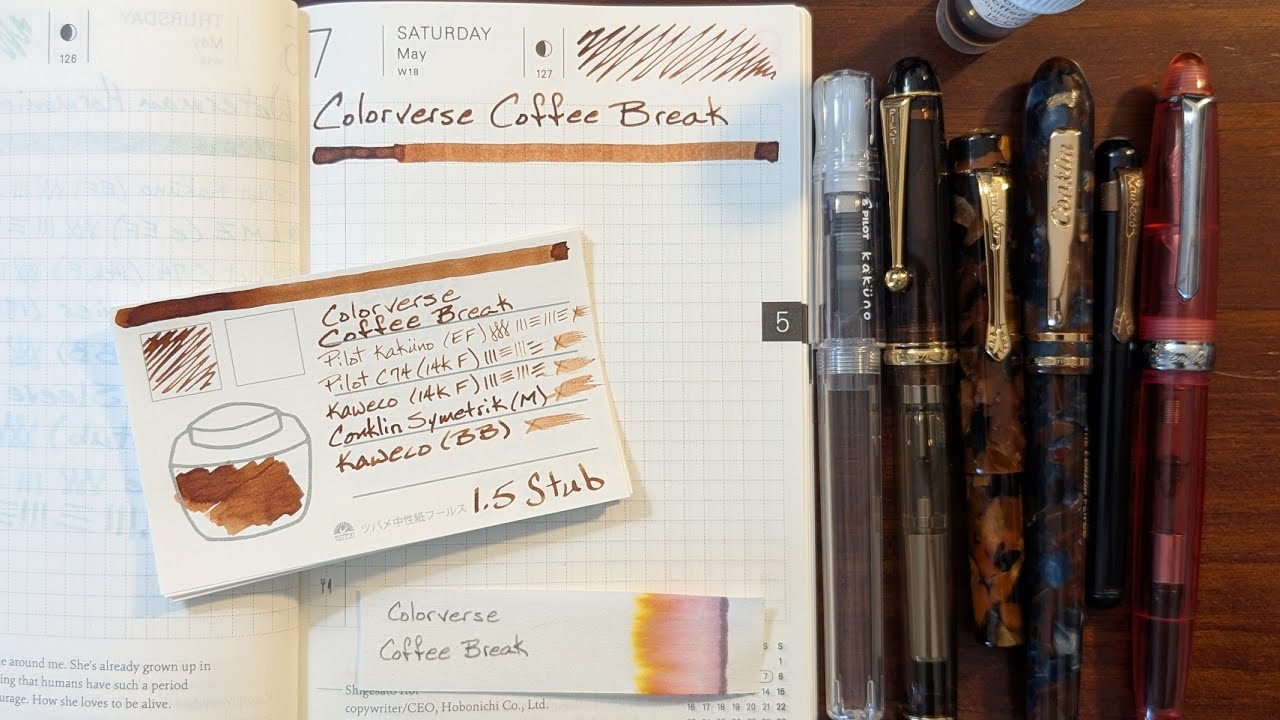 THURSDAY
May
W18
126
7
SATURDAY
May
W18
127
Colorverse Coffee Break
Colorverse
Coffee Break
Pilot Kaküno (EF)
Pilot C74 (14K F)
Kaweco (14K F)
Conklin Symetrik (M)
Kaweco (BB)
1.5 Stub
ツバメ中性紙フールス
5
PILOT kaküno
PILOT
Conklin
Colorverse
Coffee Break
e around me. She's already grown up in
ing that humans have such a period
urage. How she loves to be alive.
Shigesato
copywriter/CEO, Hobonichi Co., Ltd.
S S
1
7 8
14 15
16 17 18 19 20 21 22